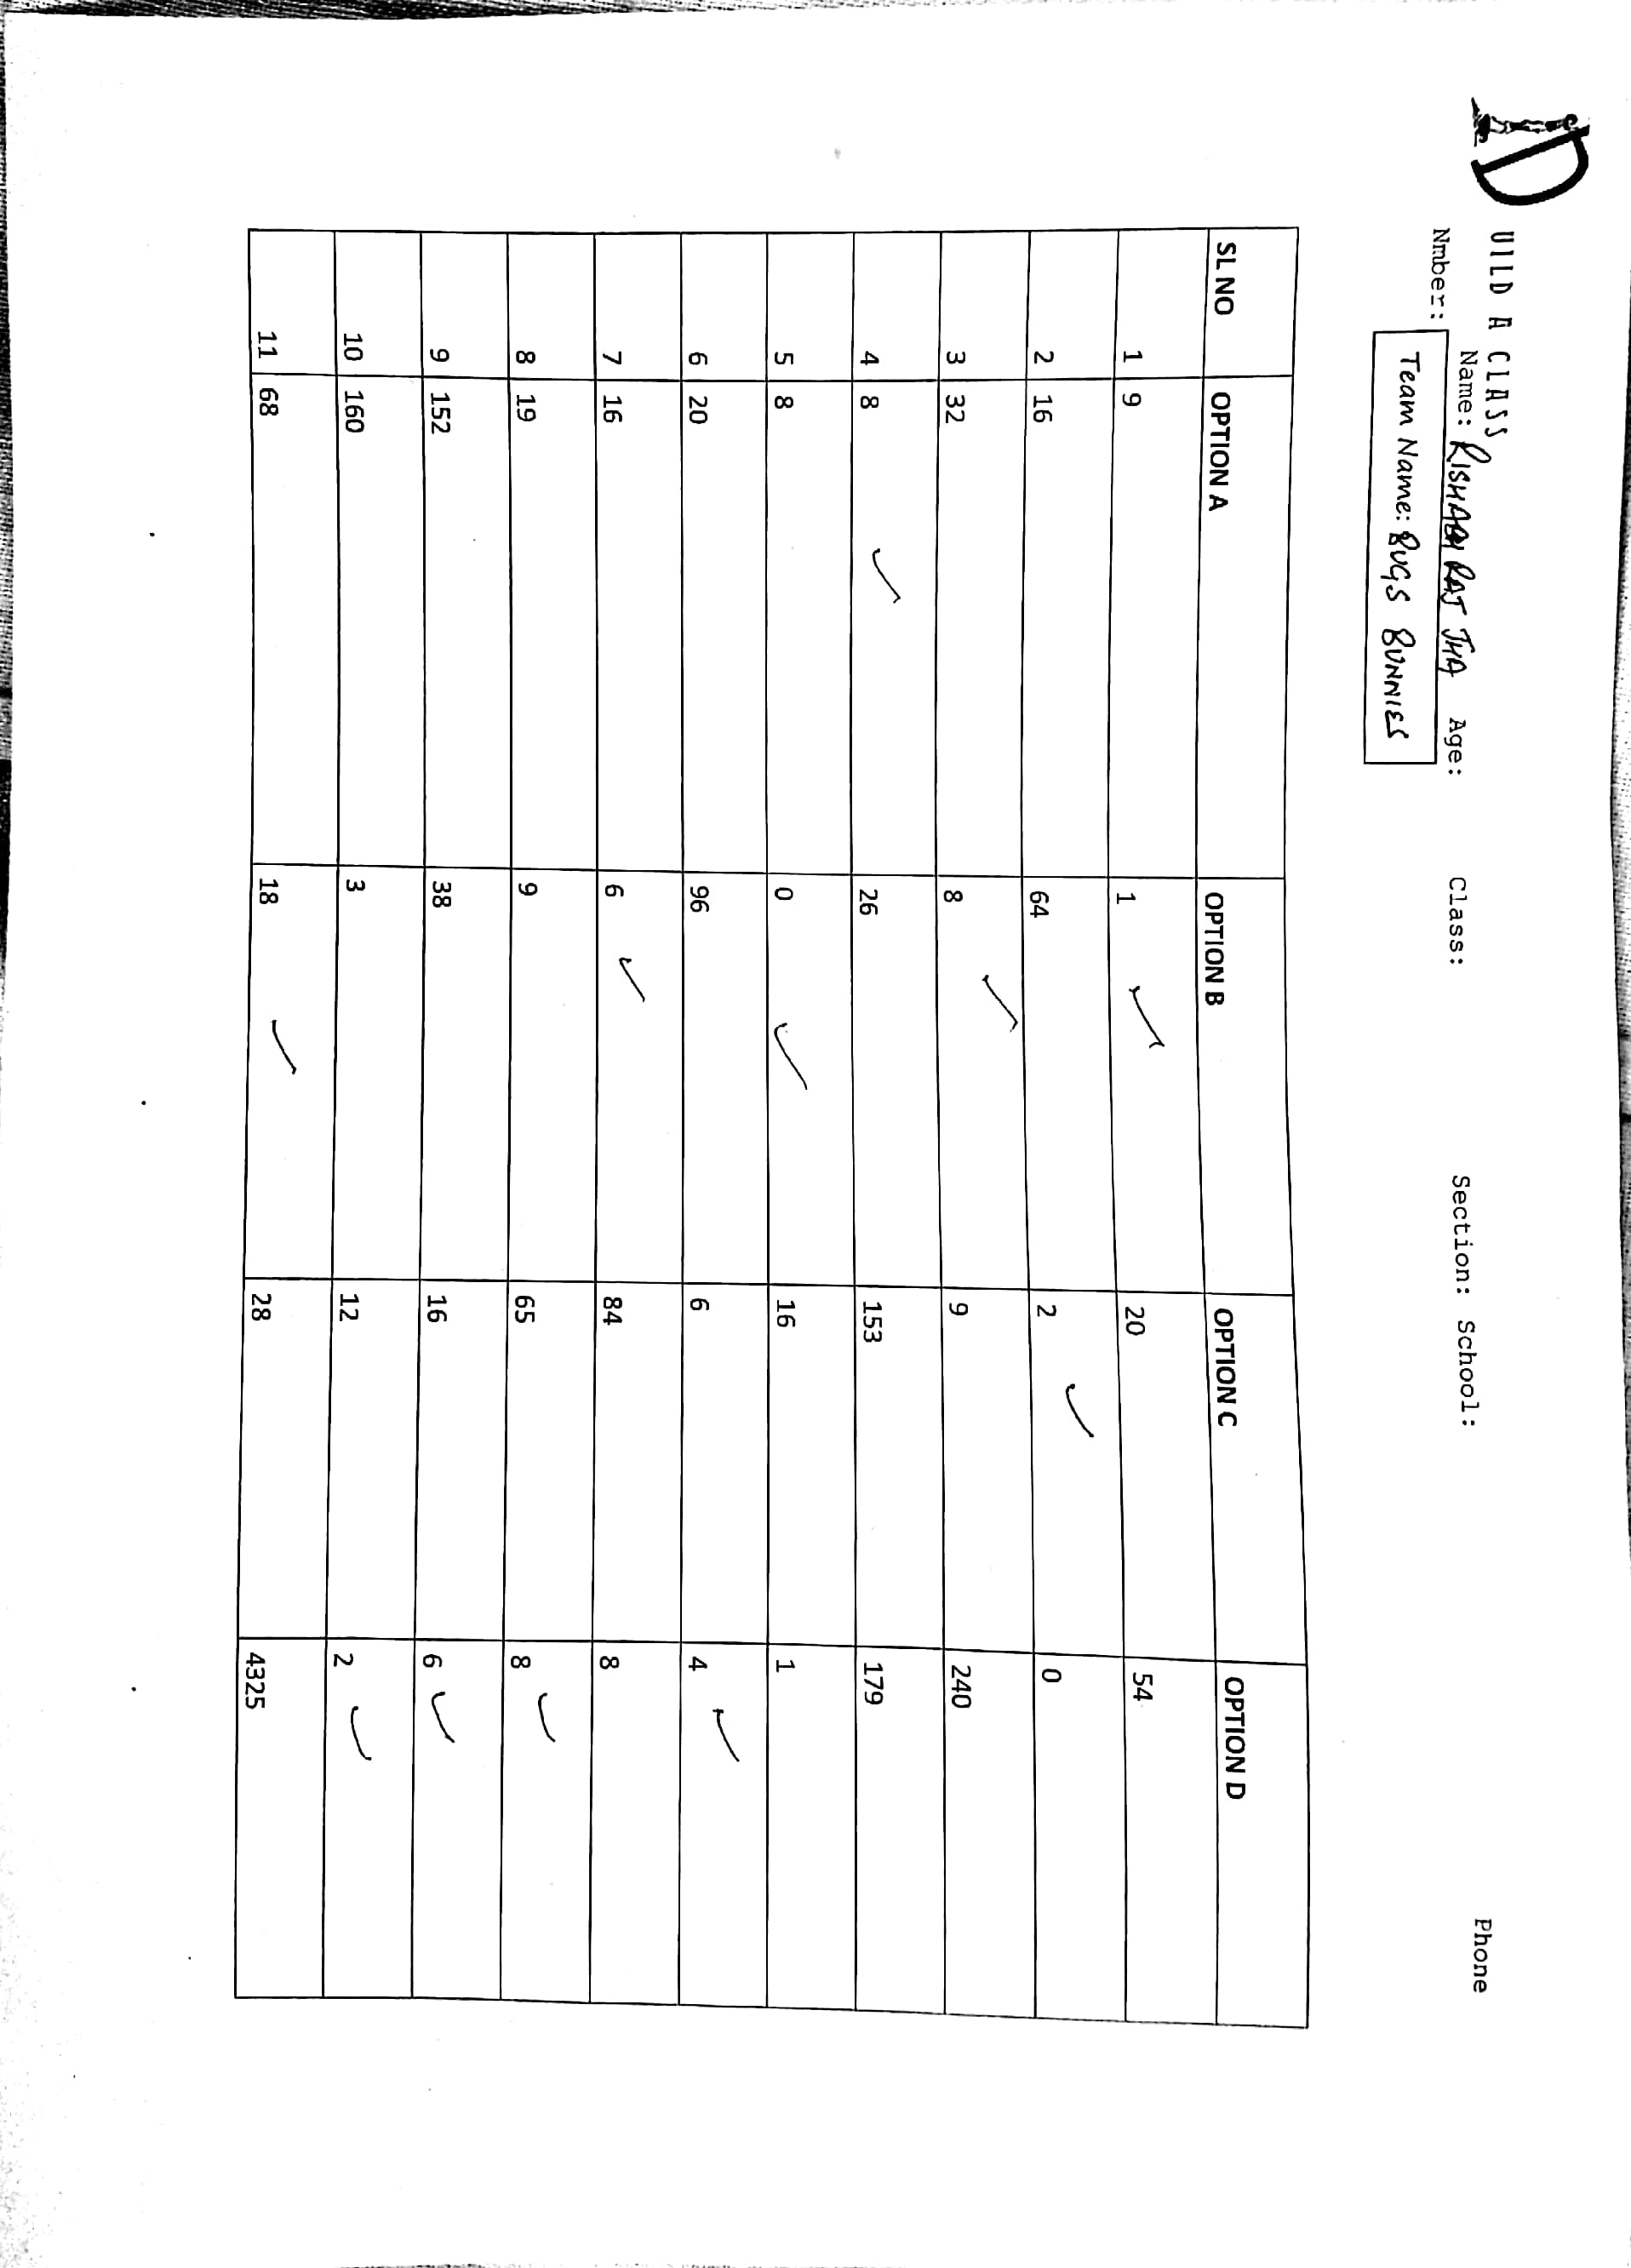 D
UILD A CLASS
Name: RISHABH RAJ JHA Age: Class: Section: School: Phone
Nmber:
Team Name: BUGS BUNNIES
SL NO OPTION A OPTION B OPTION C OPTION D
1 9 1 ✓ 20 54
2 16 64 2 ✓ 0
3 32 8 ✓ 9 240
4 8 ✓ 26 153 179
5 8 0 ✓ 16 1
6 20 96 6 4 ✓
7 16 6 ✓ 84 8
8 19 9 65 8 ✓
9 152 38 16 6 ✓
10 160 3 12 2 ✓
11 68 18 ✓ 28 4325